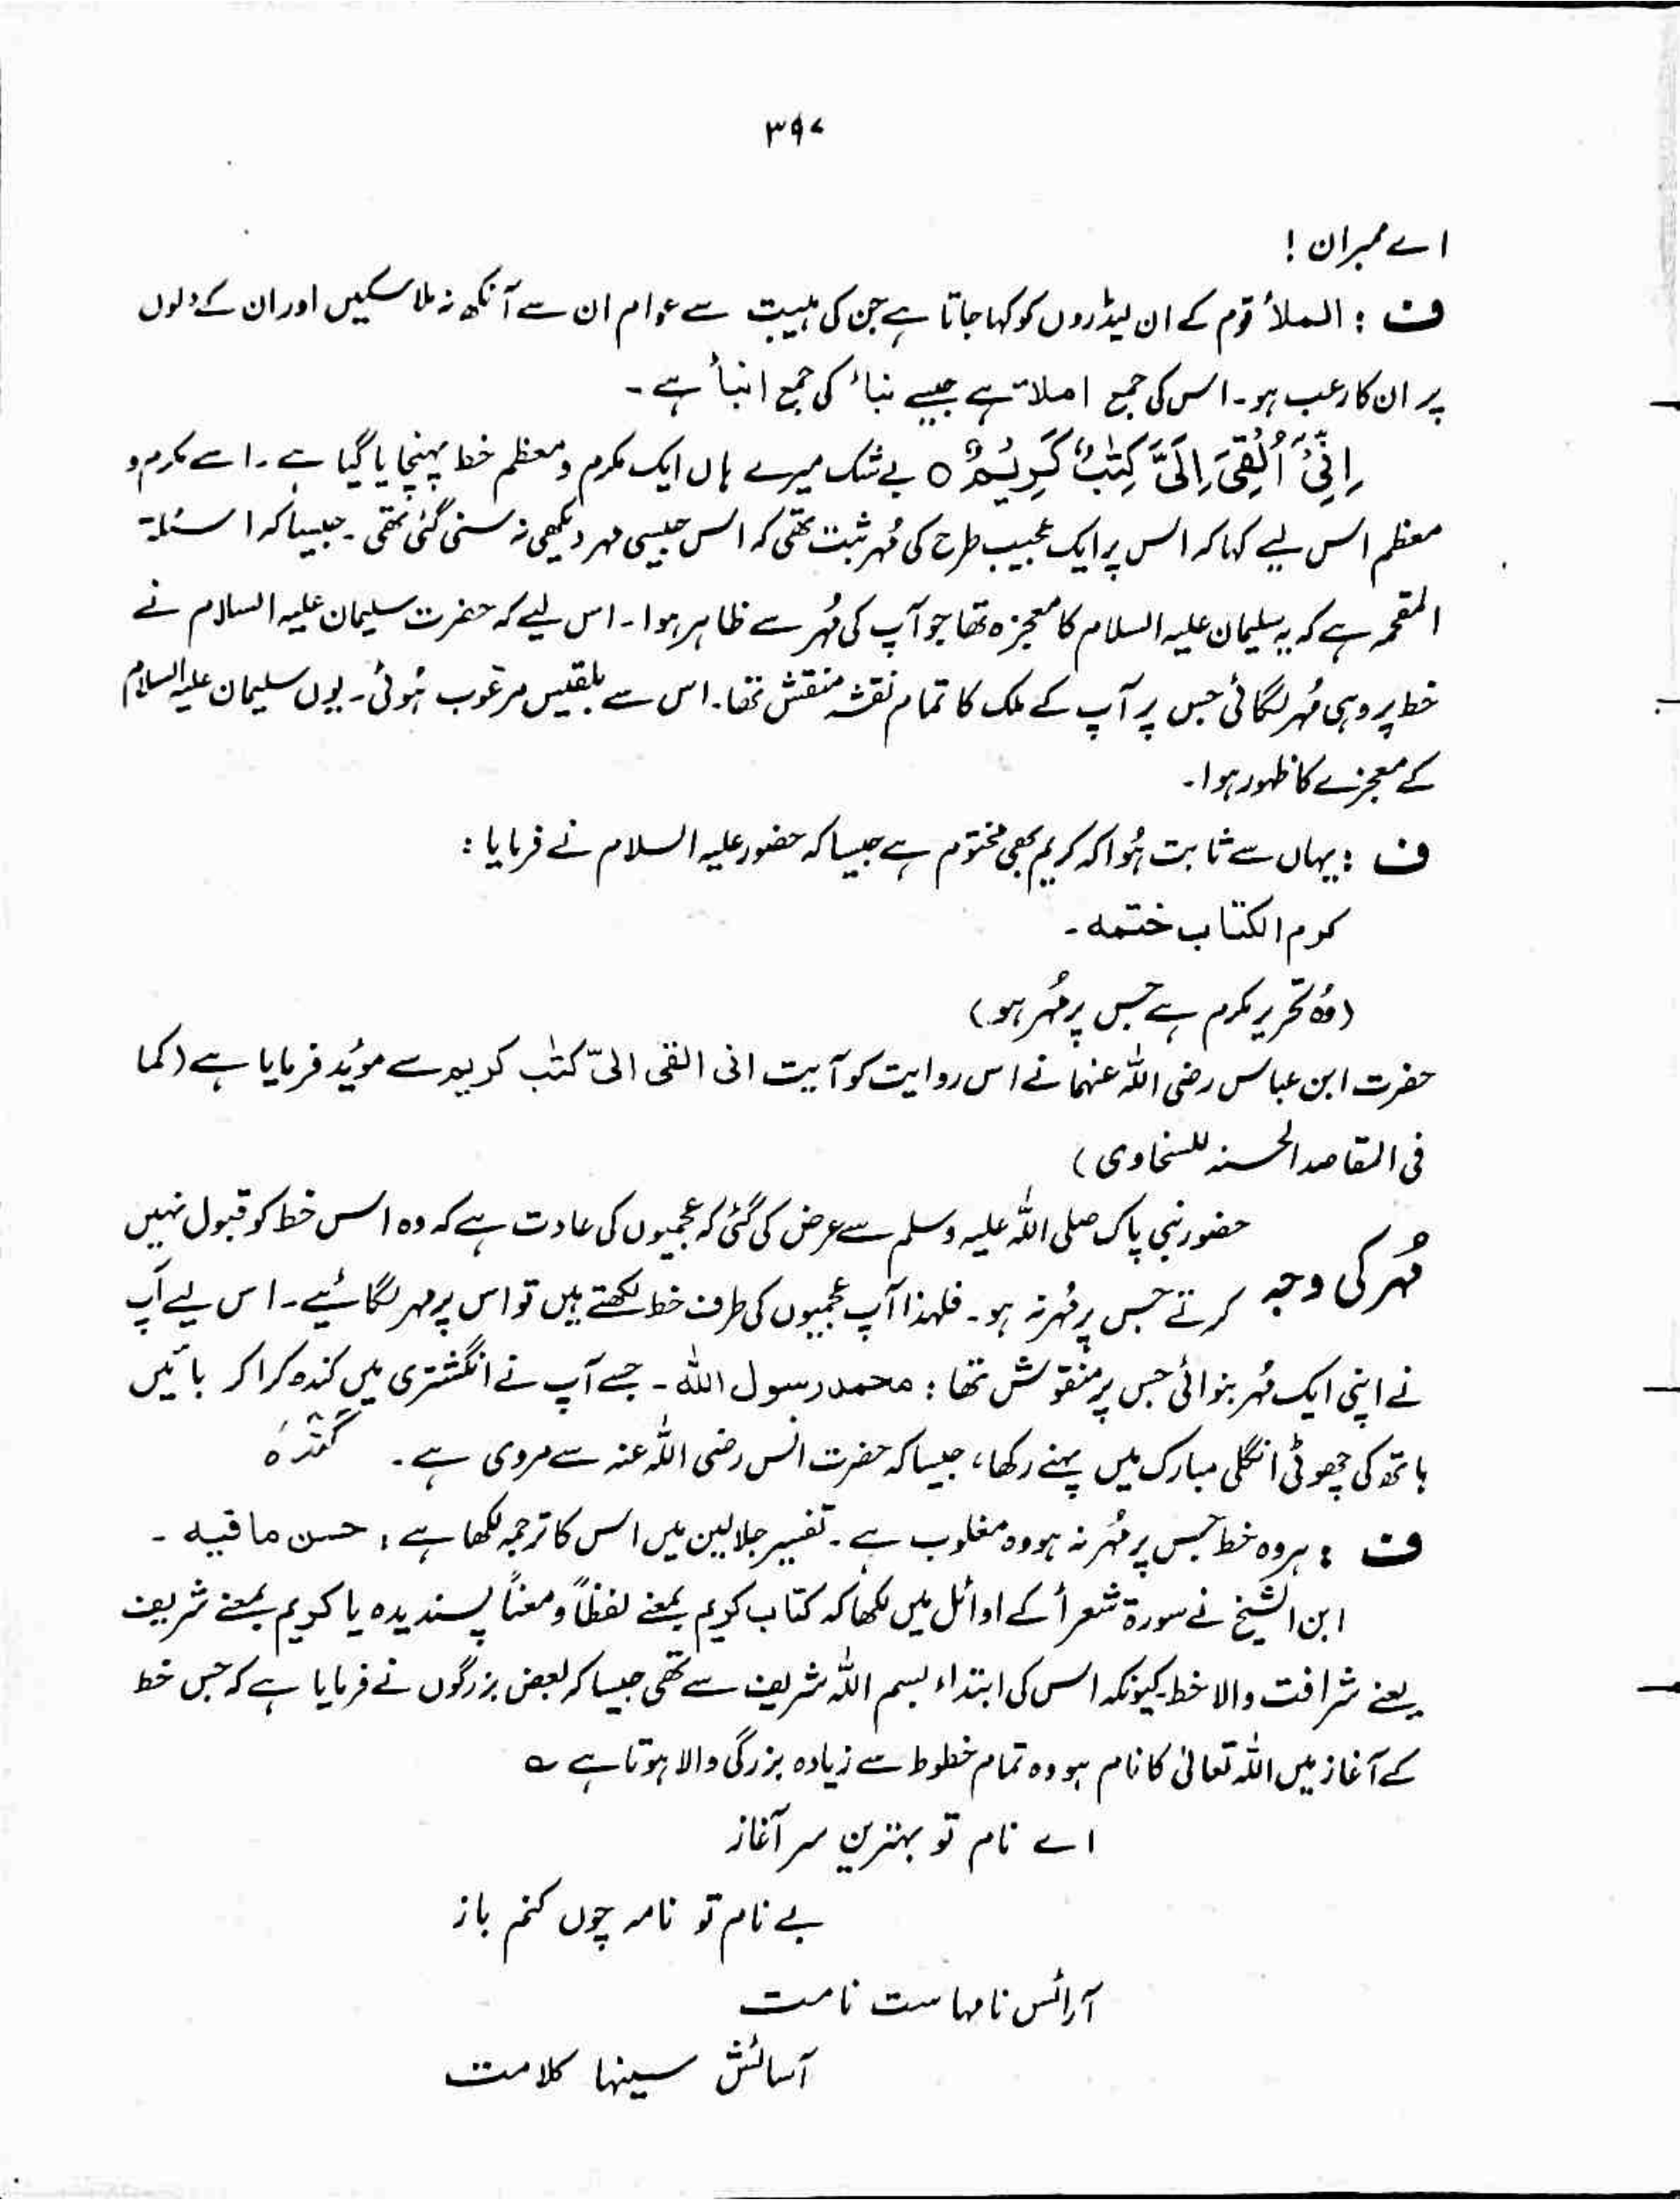 ۳۹۷
اے ممبران !
ف : الملأ قوم کے ان لیڈروں کو کہا جاتا ہے جن کی ہیبت سے عوام ان سے آنکھ نہ ملا سکیں اور ان کے دلوں
پر ان کا رعب ہو۔ اس کی جمع املاء ہے جیسے نباء کی جمع انبأ ہے۔
اِنِّیْۤ اُلْقِیَ اِلَیَّ كِتٰبٌ كَرِیْمٌ ○ بے شک میرے ہاں ایک مکرم و معظم خط پہنچایا گیا ہے۔ اسے مکرم و
معظم اس لیے کہا کہ اس پر ایک عجیب طرح کی مُہر ثبت تھی کہ اس جیسی مہر دیکھی نہ سنی گئی تھی۔ جیسا کہ اسئلۃ
المقحمہ ہے کہ یہ سلیمان علیہ السلام کا معجزہ تھا جو آپ کی مُہر سے ظاہر ہوا۔ اس لیے کہ حضرت سلیمان علیہ السلام نے
خط پر وہی مُہر لگائی جس پر آپ کے ملک کا تمام نقشہ منقش تھا۔ اس سے بلقیس مرعوب ہُوئی۔ یوں سلیمان علیہ السلام
کے معجزے کا ظہور ہوا۔
ف : یہاں سے ثابت ہُوا کہ کریم بمعنی مختوم ہے جیسا کہ حضور علیہ السلام نے فرمایا :
کرم الکتاب ختمہ۔
(وُہ تحریر مکرم ہے جس پر مُہر ہو)
حضرت ابن عباس رضی اللہ عنہما نے اس روایت کو آیت انی القی الیّ کتٰب کریم سے مؤید فرمایا ہے (کما
فی المقاصد الحسنہ للسخاوی)
حضور نبی پاک صلی اللہ علیہ وسلم سے عرض کی گئی کہ عجمیوں کی عادت ہے کہ وہ اس خط کو قبول نہیں
مُہر کی وجہ کرتے جس پر مُہر نہ ہو۔ فلہذا آپ عجمیوں کی طرف خط لکھتے ہیں تو اس پر مہر لگائیے۔ اس لیے آپ
نے اپنی ایک مُہر بنوائی جس پر منقوش تھا : محمد رسول اللہ۔ جسے آپ نے انگشتری میں کندہ کرا کر بائیں
ہاتھ کی چھوٹی انگلی مبارک میں پہنے رکھا، جیسا کہ حضرت انس رضی اللہ عنہ سے مروی ہے۔
ف : ہر وہ خط جس پر مُہر نہ ہو وہ مغلوب ہے۔ تفسیر جلالین میں اس کا ترجمہ لکھا ہے : حسن ما فیہ۔
ابن الشیخ نے سورۃ شعرأ کے اوائل میں لکھا کہ کتاب کریم بمعنے لفظاً و معناً پسندیدہ یا کریم بمعنے شریف
یعنے شرافت والا خط کیونکہ اس کی ابتداء بسم اللہ شریف سے تھی جیسا کہ بعض بزرگوں نے فرمایا ہے کہ جس خط
کے آغاز میں اللہ تعالیٰ کا نام ہو وہ تمام خطوط سے زیادہ بزرگی والا ہوتا ہے ؎
اے نام تو بہترین سر آغاز
بے نام تو نامہ چوں کنم باز
آرائس نامہاست نامت
آسائش سینہا کلامت